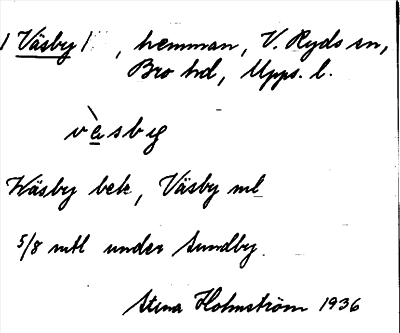 /Väsby/, hemman, V. Ryds sn,
Bro hd, Upps. l.
vὰsby
Väsby bek, Väsby ml
5/8 mtl under Sundby
Stina Holmström 1936